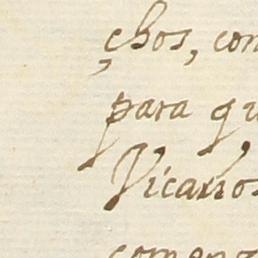 chos, con
para qu
Vicarios
comen